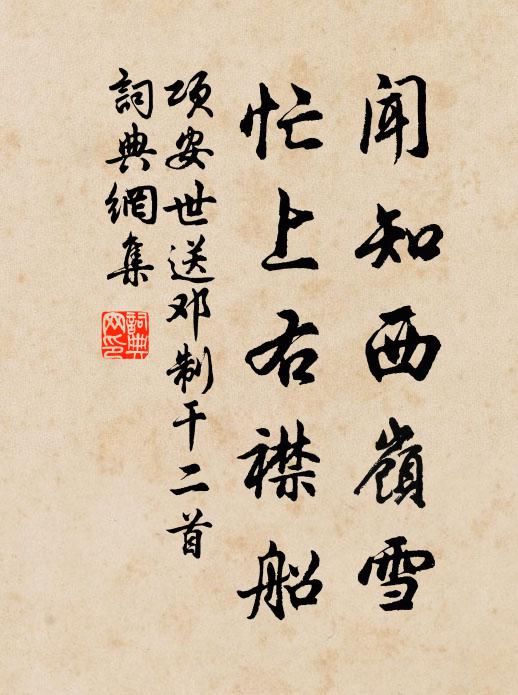 闻知西嶺雪
忙上右襟船
项安世送邓制干二首
詞典網集
詞典網印